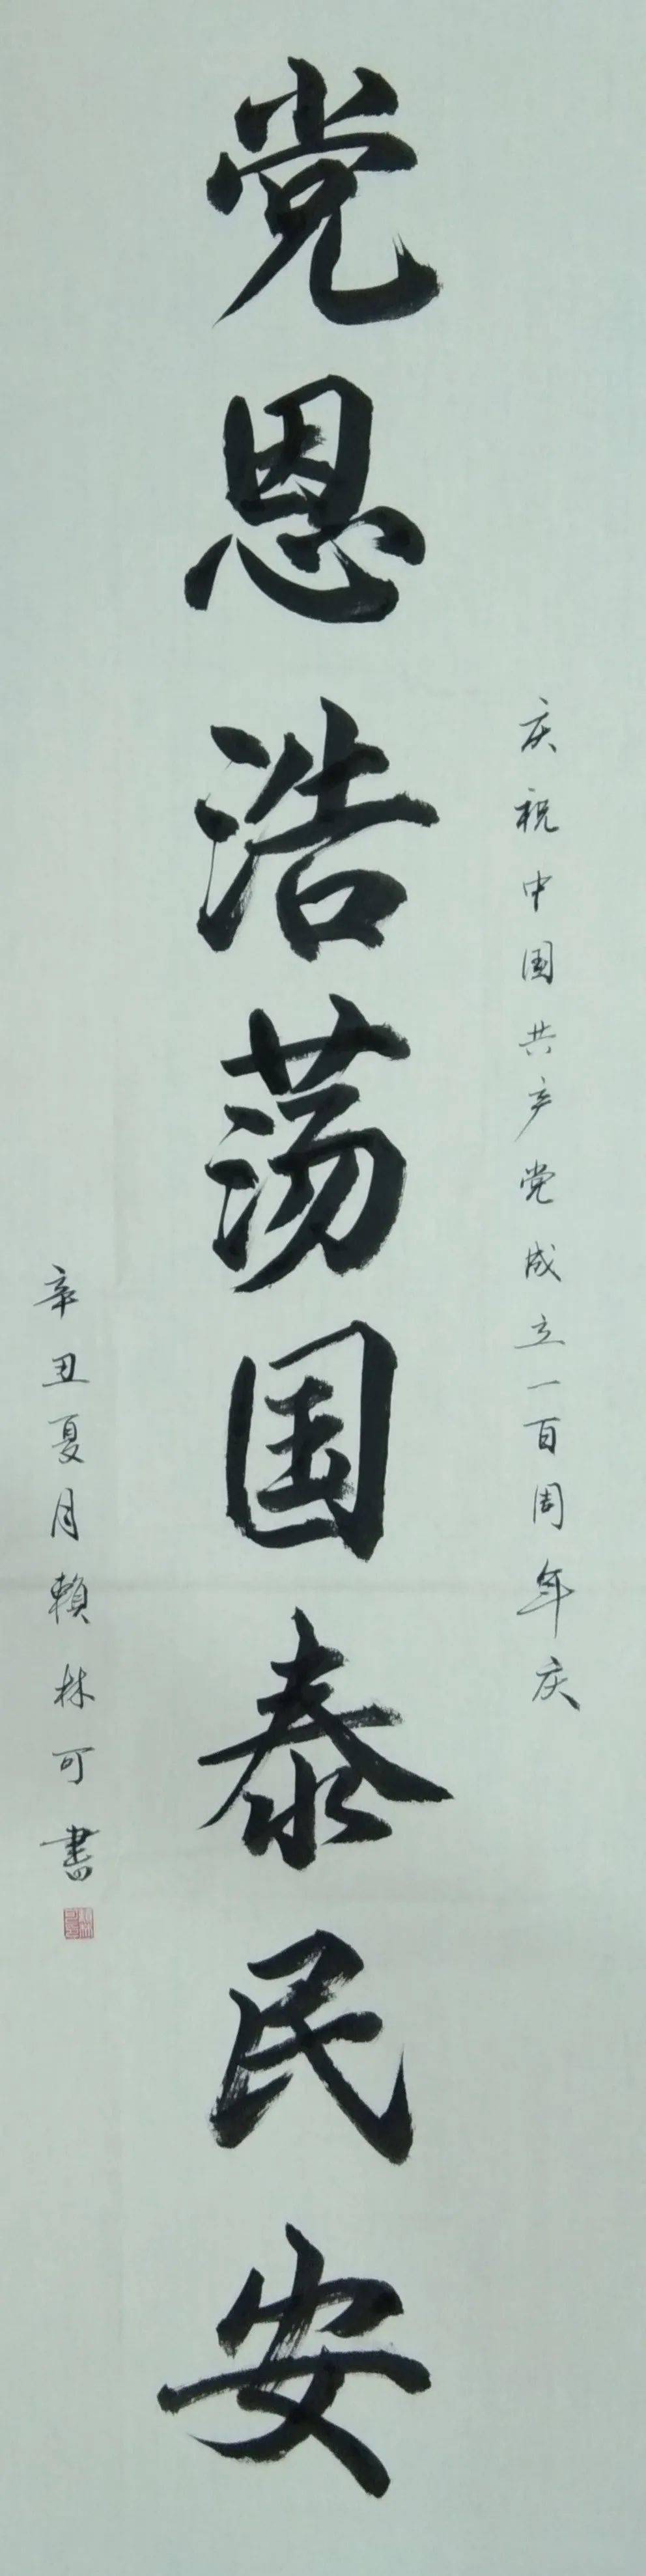 庆祝中国共产党成立一百周年庆
党恩浩荡国泰民安
辛丑夏月赖林可書